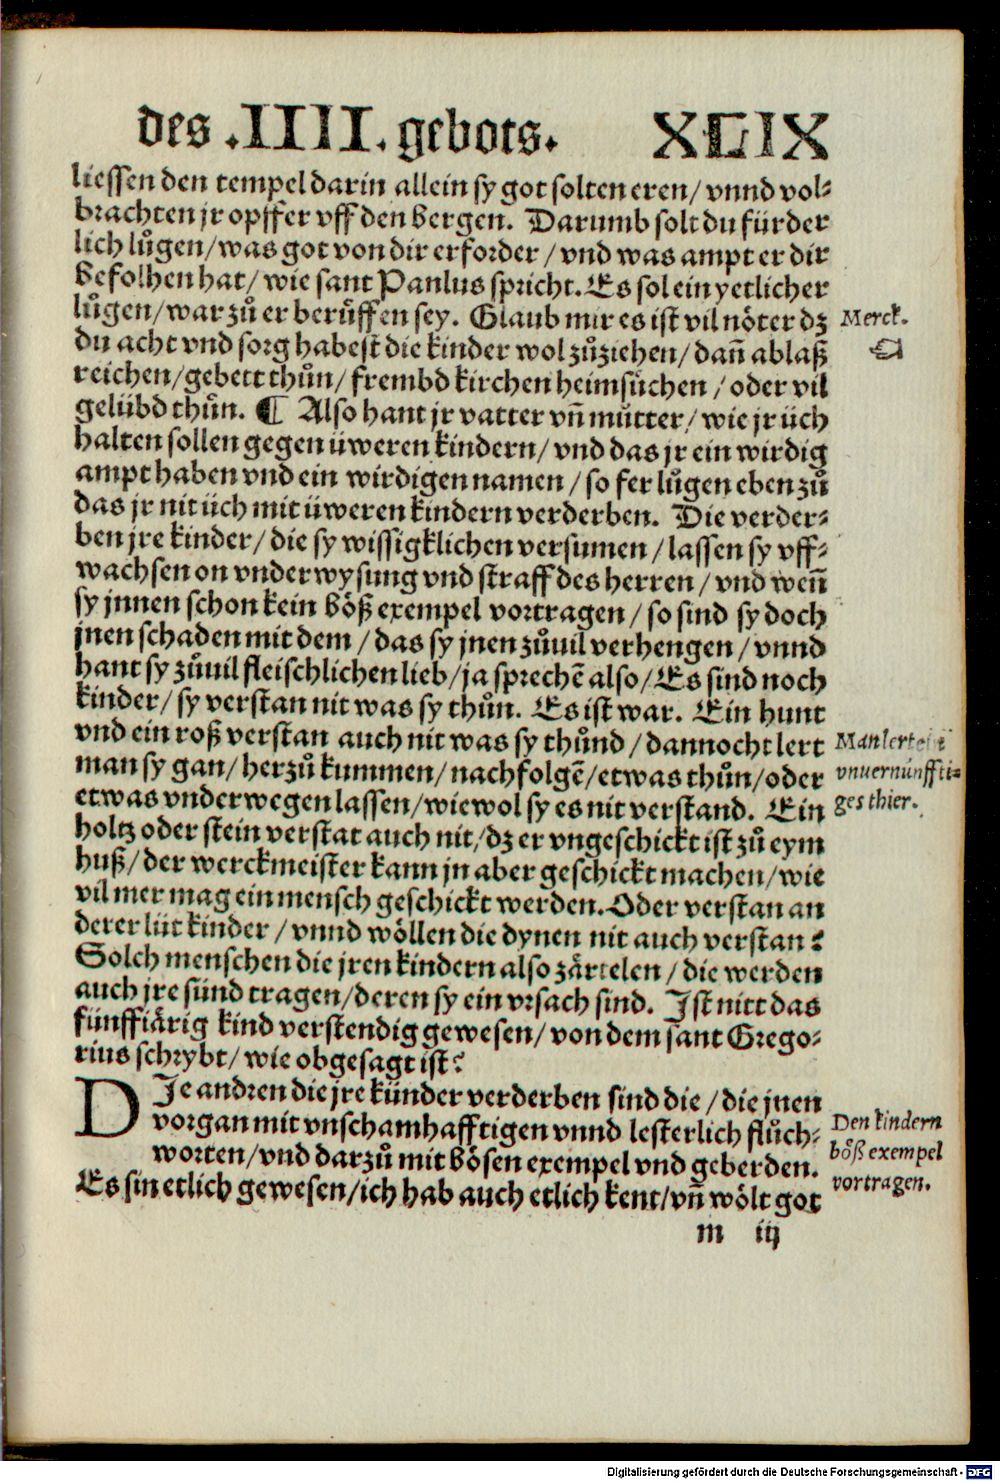 des .IIII. gebots. XLIX
liessen den tempel darin allein sy got solten eren/ vnnd vol⸗
brachten jr opffer vff den bergen. Darumb solt du fürder
lich lůgen/ was got von dir erforder / vnd was ampt er dir
befolhen hat/ wie sant Panlus spricht. Es sol ein yetlicher
lůgen/ war zů er berůffen sey. Glaub mir es ist vil nöter dz
Merck.
du acht vnd sorg habest die kinder wol zůziehen/ dañ ablaß
☜
reichen/ gebett thůn/ frembd kirchen heimsůchen / oder vil
gelübd thůn. ¶ Also hant jr vatter vñ můtter/ wie jr üch
halten sollen gegen üweren kindern/ vnd das jr ein wirdig
ampt haben vnd ein wirdigen namen / so fer lůgen eben zů
das jr nit üch mit üweren kindern verderben. Die verder⸗
ben jre kinder/ die sy wissigklichen versumen / lassen sy vff⸗
wachsen on vnderwysung vnd straff des herren / vnd weñ
sy jnnen schon kein böß exempel vortragen / so sind sy doch
jnen schaden mit dem / das sy jnen zůuil verhengen / vnnd
hant sy zůuil fleischlichen lieb/ ja sprechē also/ Es sind noch
kinder/ sy verstan nit was sy thůn. Es ist war. Ein hunt
vnd ein roß verstan auch nit was sy thůnd / dannocht lert
Man lert
man sy gan/ herzů kummen/ nachfolgē/ etwas thůn/ oder
vnuernünffti⸗
etwas vnderwegen lassen/ wiewol sy es nit verstand. Ein
ges thier.
holtz oder stein verstat auch nit/ dz er vngeschickt ist zů eym
huß/ der werckmeister kann jn aber geschickt machen/ wie
vil mer mag ein mensch geschickt werden. Oder verstan an
derer lüt kinder / vnnd wöllen die dynen nit auch verstan?
Solch menschen die jren kindern also zärtelen / die werden
auch jre sünd tragen/ deren sy ein vrsach sind. Ist nitt das
fünffiärig kind verstendig gewesen/ von dem sant Grego⸗
rius schrybt/ wie obgesagt ist?
DIe andren die jre künder verderben sind die / die jnen
vorgan mit vnschamhafftigen vnnd lesterlich flůch⸗
Den kindern
worten/ vnd darzů mit bösen exempel vnd geberden.
böß exempel
Es sin etlich gewesen/ ich hab auch etlich kent/ vñ wölt got
vortragen.
m iij
Digitalisierung gefördert durch die Deutsche Forschungsgemeinschaft - DFG